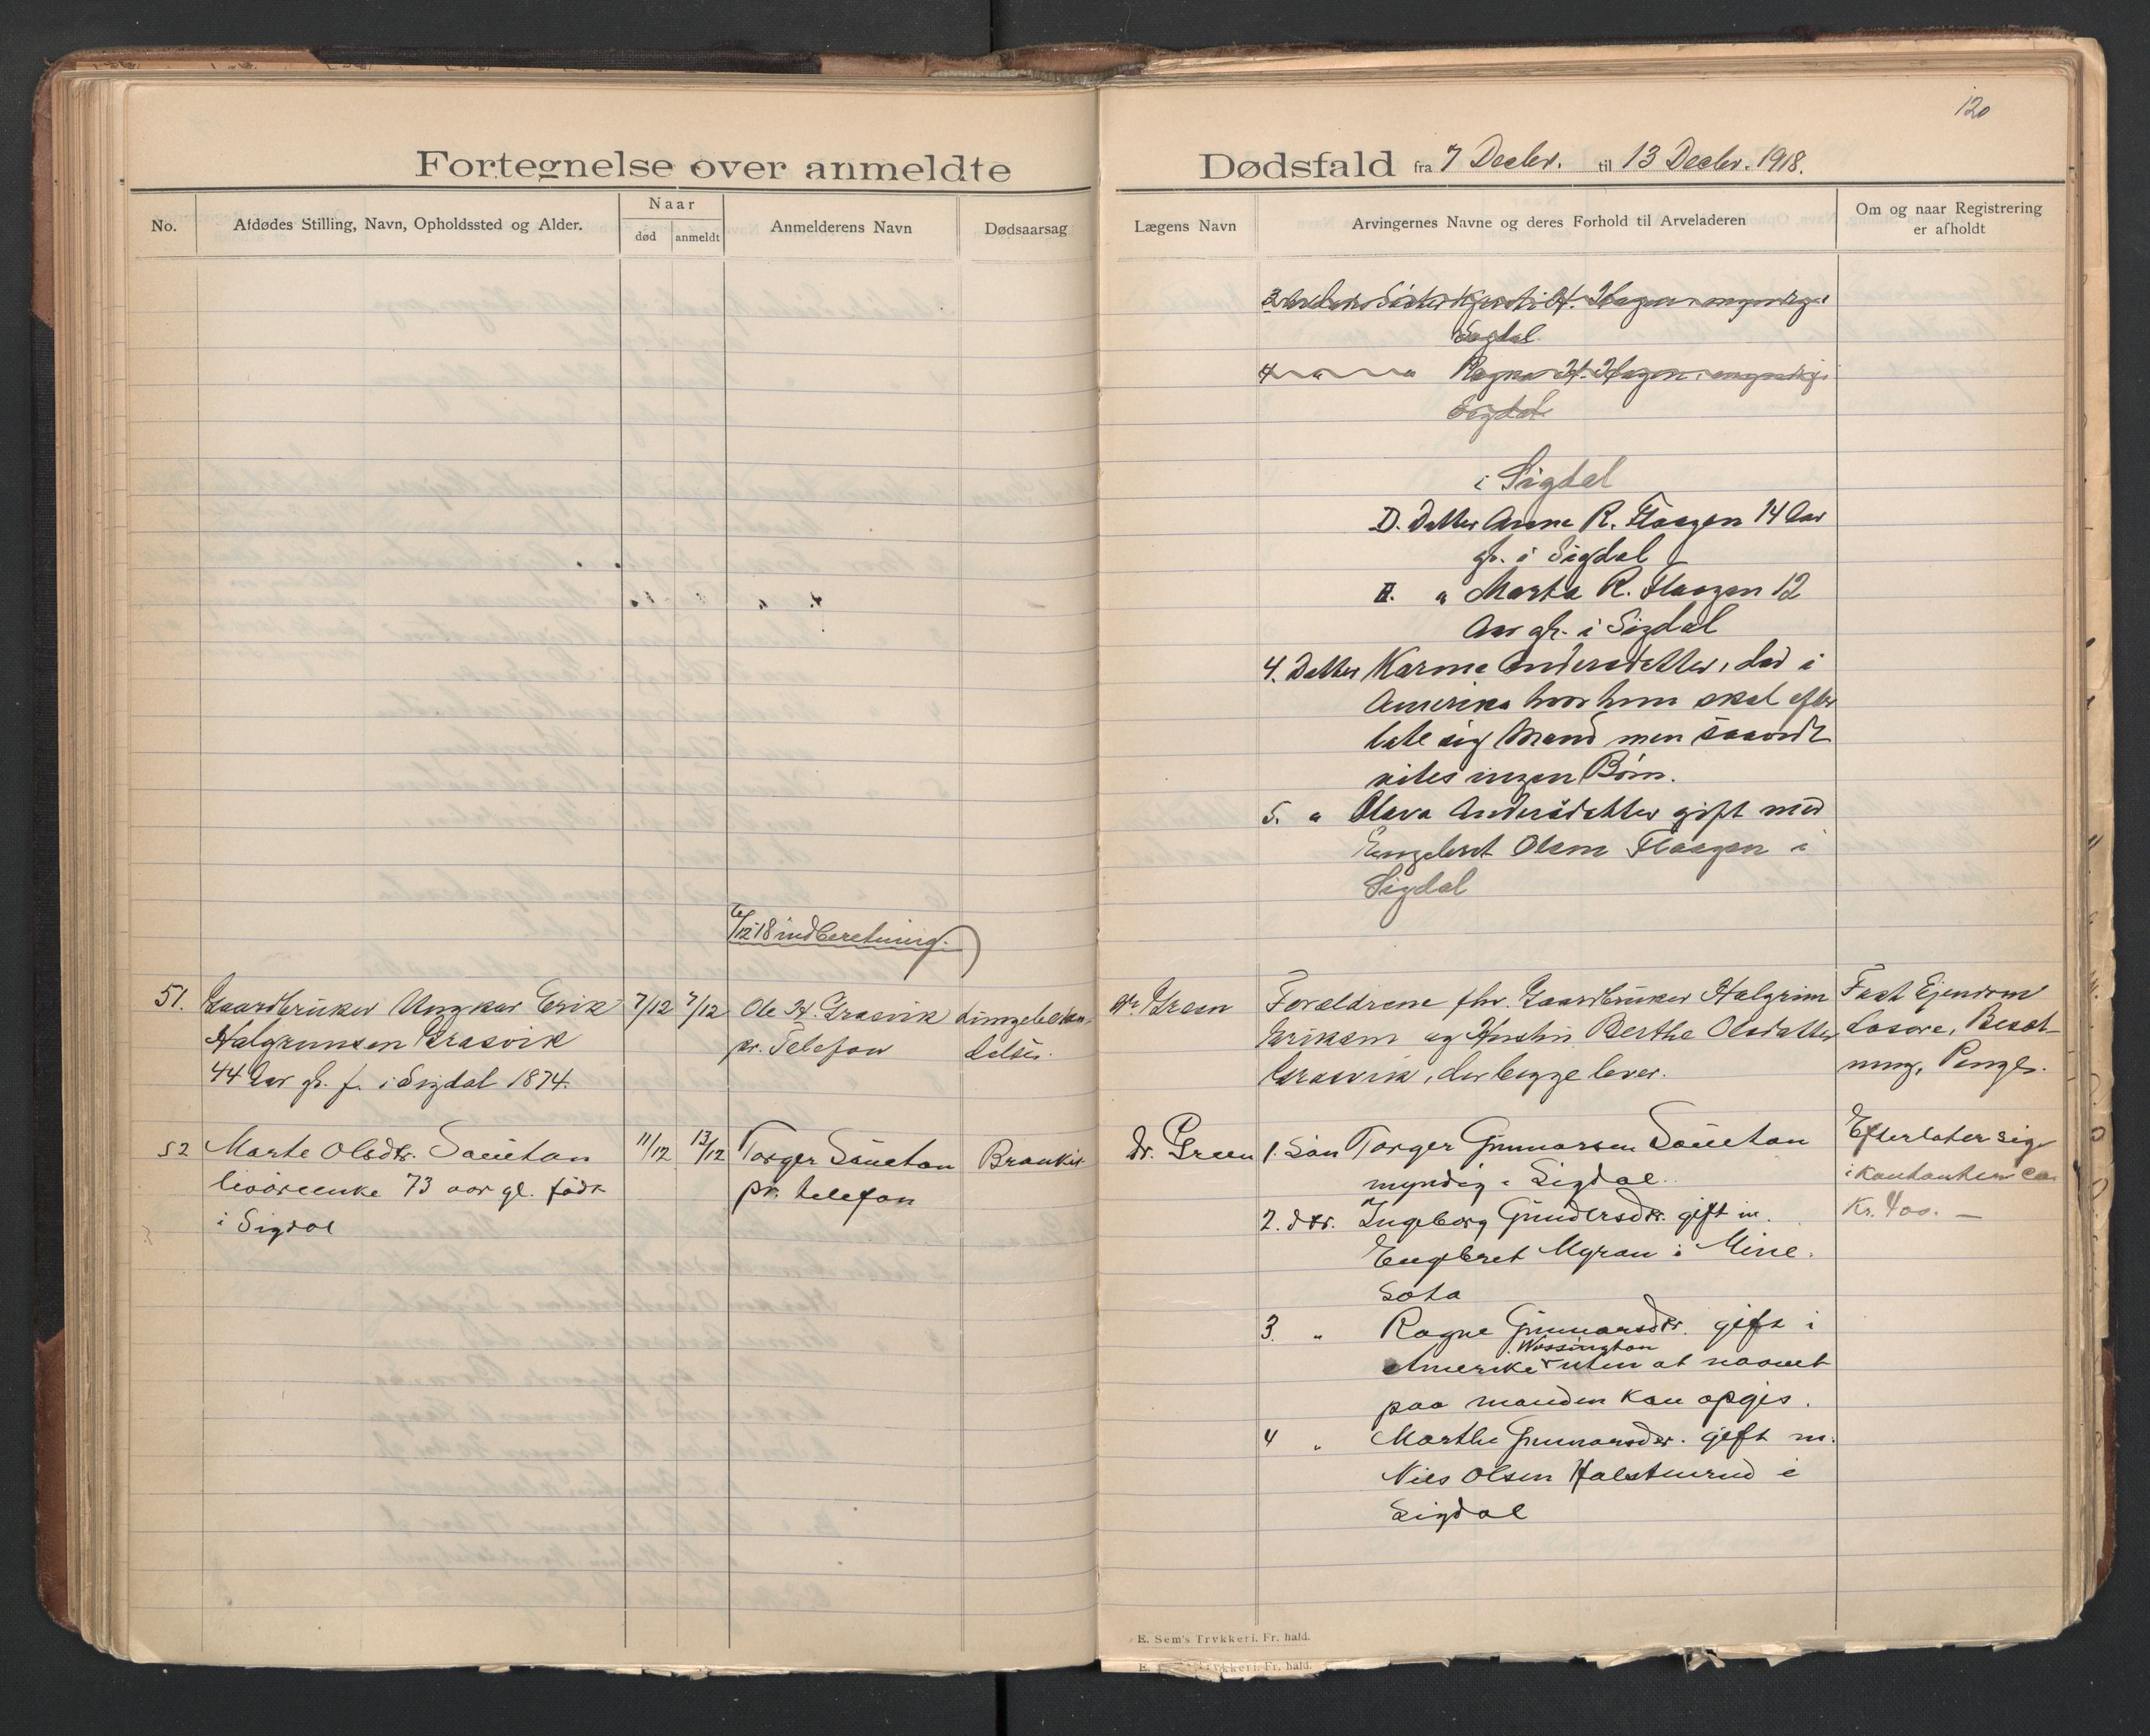 120
Fortegnelse over anmeldte
Dødsfald fra 7 Decbr. til 13 Decbr. 1918.
No.
Afdødes Stilling, Navn, Opholdssted og Alder.
Naar
død
anmeldt
Anmelderens Navn
Dødsaarsag
Lægens Navn
Arvingernes Navne og deres Forhold til Arveladeren
Om og naar Registrering
er afholdt
Sigdal
4 Ragna H. Haagen
Sigdal
i Sigdal
D. Datter Anne R. Flaagen 14 Aar
gl. i Sigdal
E. " Marta R. Flaagen 12
Aar gl. i Sigdal
4. Datter Karine Andersdatter, død i
Amerika hvor hun skal efter
late sig Mand men saavidt
vites ingen Børn.
5. " Olava Andersdatter gift med
Engebret Olsen Flaagen i
Sigdal
6/12 18 indberetning.
51.
Gaardbruker Ungkar Erik
Halgrimsen Grasvik
44 Aar gl. f. i Sigdal 1874.
7/12
7/12
Ole H. Grasvik
pr. Telefon
Lungebeten-
delse.
Dr. Green
Forældrene fhv. Gaardbruker Halgrim
Eriksen og Hustru Berthe Olsdatter
Grasvik, der begge lever.
Fast Ejendom
Løsøre, Besæt-
ning, Penge.
52
Marte Olsdtr. Sauetan
livørenke 73 aar gl. født
i Sigdal
11/12
13/12
Torger Sauetan
pr. telefon
Bronkit
Dr. Green
1. Søn Torger Gunnarsen Sauetan
myndig i Sigdal.
2. dtr. Ingeborg Gundersdtr. gift m.
Engebret Myran i Mine.
sota
3. " Ragne Gunnarsdtr. gift i
Wassington
Amerika uten at navnet
paa manden kan opgis.
4 " Marthe Gunnarsdtr. gift m.
Nils Olsen Halstenrud i
Sigdal
Efterlater sig
i kontanter ca.
Kr. 400. —
E. Sem's Trykkeri. Fr. hald.
Trykkeri. Fr. hald.